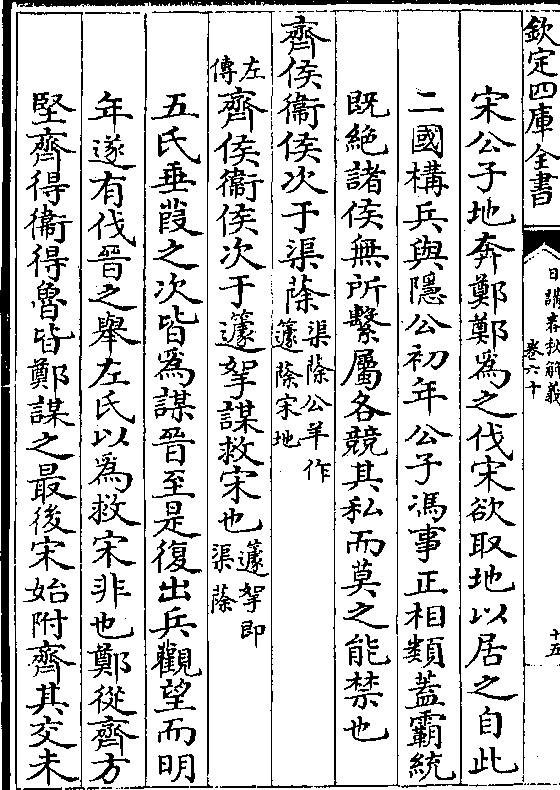 欽定四庫全書
日講春秋解義
卷六十
十五
宋公子地奔鄭鄭爲之伐宋欲取地以居之自此
二國構兵與隱公初年公子馮事正相類蓋霸統
既絶諸侯無所繫屬各競其私而莫之能禁也
齊侯衞侯次于渠蒢渠蒢公羊作籧蒢宋地
左傳齊侯衞侯次于籧挐謀救宋也籧挐即渠蒢
五氏垂葭之次皆爲謀晉至是復出兵觀望而明
年遂有伐晉之舉左氏以爲救宋非也鄭從齊方
堅齊得衞得魯皆鄭謀之最後宋始附齊其交未